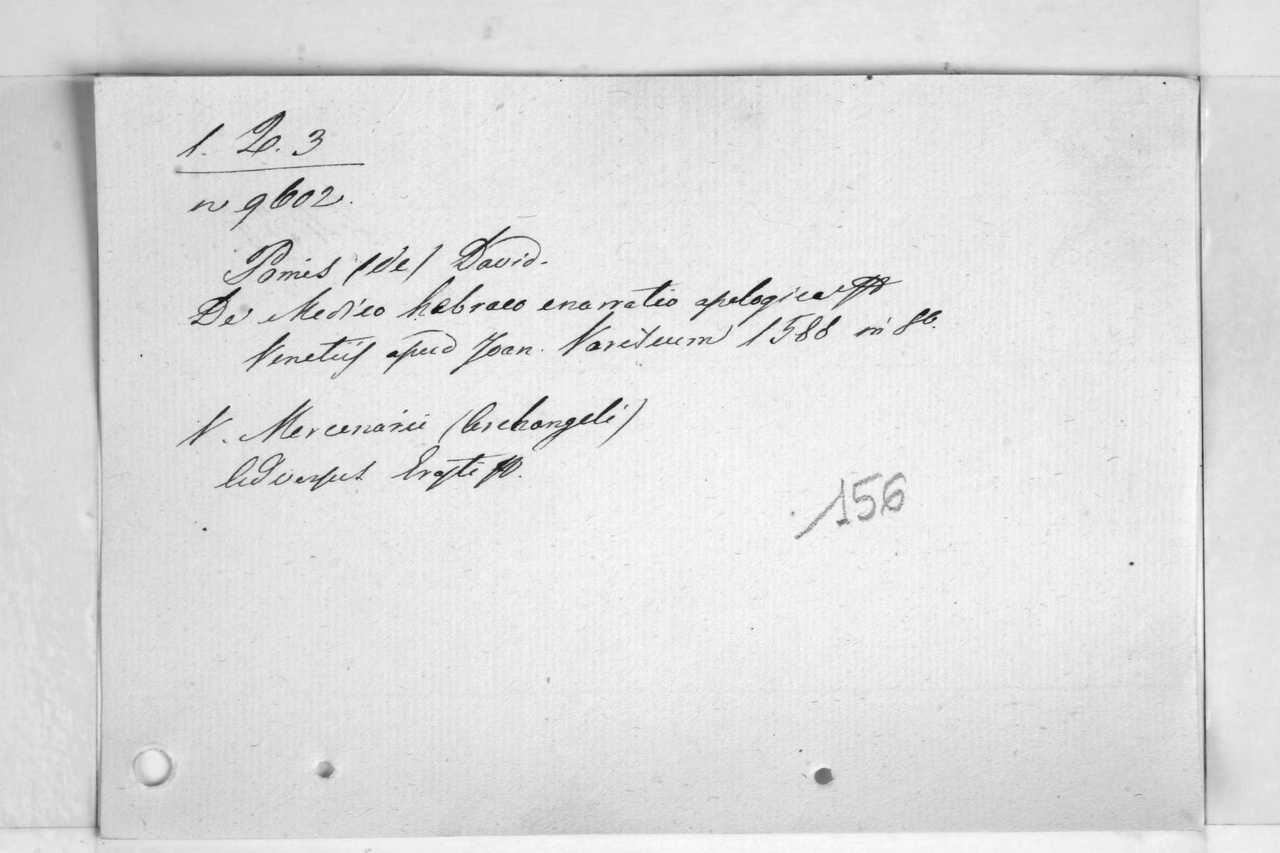 1. Q. 3
n 9602.
Pomis (de) David.
De Medico hebraeo enarratio apologica
Venetiis apud Joan. Variscum 1588 in 8o.
V. Mercenarii (Archangeli)
Adversus Erasti
156